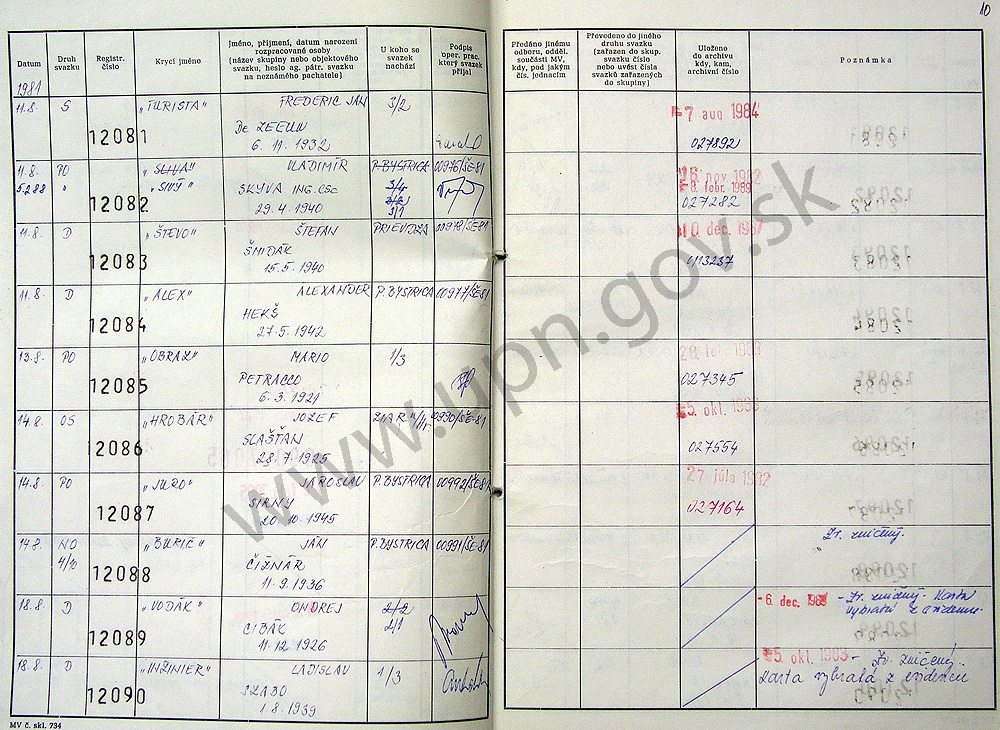 10
Datum
Druh svazku
Registr. číslo
Krycí jméno
Jméno, příjmení, datum narození rozpracované osoby (název skupiny nebo objektového svazku, heslo ag. pátr. svazku na neznámého pachatele)
U koho se svazek nachází
Podpis oper. prac. který svazek přijal
Předáno jinému odboru, odděl. součásti MV, kdy, pod jakým čís. jednacím
Převedeno do jiného druhu svazku (zařazen do skup. svazku číslo nebo uvést čísla svazků zařazených do skupiny)
Uloženo do archivu kdy, kam, archivní číslo
Poznámka
1981
11.8. S 12081 „TURISTA" FREDERIC JAN 3/2
De ZEEUW
6. 11. 1932
7 aug 1984
027892
11.8. PO „SLIVA" VLADIMÍR P. BYSTRICA 00976/ŠE-81
5.2.88 " 12082 „SIVÝ" SKYVA ING. CSc 3/4
29. 4. 1940 3/1
nov 1982
8. febr. 1989
027282
11.8. D 12083 „ŠTEVO" ŠTEFAN PRIEVIDZA 00978/ŠE-81
ŠMIDÁK
15. 5. 1940
10 dec. 1987
11.8. D 12084 „ALEX" ALEXANDER P. BYSTRICA 00977/ŠE-81
HEKŠ
27. 5. 1942
13.8. PO 12085 „OBRAZ" MARIO 1/3
PETRACCO
6. 3. 1921
027345
14.8. OS 12086 „HROBÁR" JOZEF ŽIAR 00990/ŠE-81
SLAŠŤAN
28. 7. 1925
5. okt. 1983
027554
14.8. PO 12087 „JURO" JAROSLAV P. BYSTRICA 00992/ŠE-81
SIRNY
20. 10. 1945
27 júla 1982
027164
14.8. NO 12088 JÁN P. BYSTRICA 00991/ŠE-81
4/10 ČIŽNÁR
11. 9. 1936
Zv. zničený.
18.8. D 12089 „VODÁK" ONDREJ 2/2
CIBÁK 2/1
11. 12. 1926
- 6. dec. - Zv. zničený. Karta
vybratá z evidencie
18.8. D 12090 „INŽINIER" LADISLAV 1/3
SZABO
1. 8. 1939
5. okt. 1983 - Zv. zničený.
karta vybratá z evidencie
MV č. skl. 734
www.upn.gov.sk